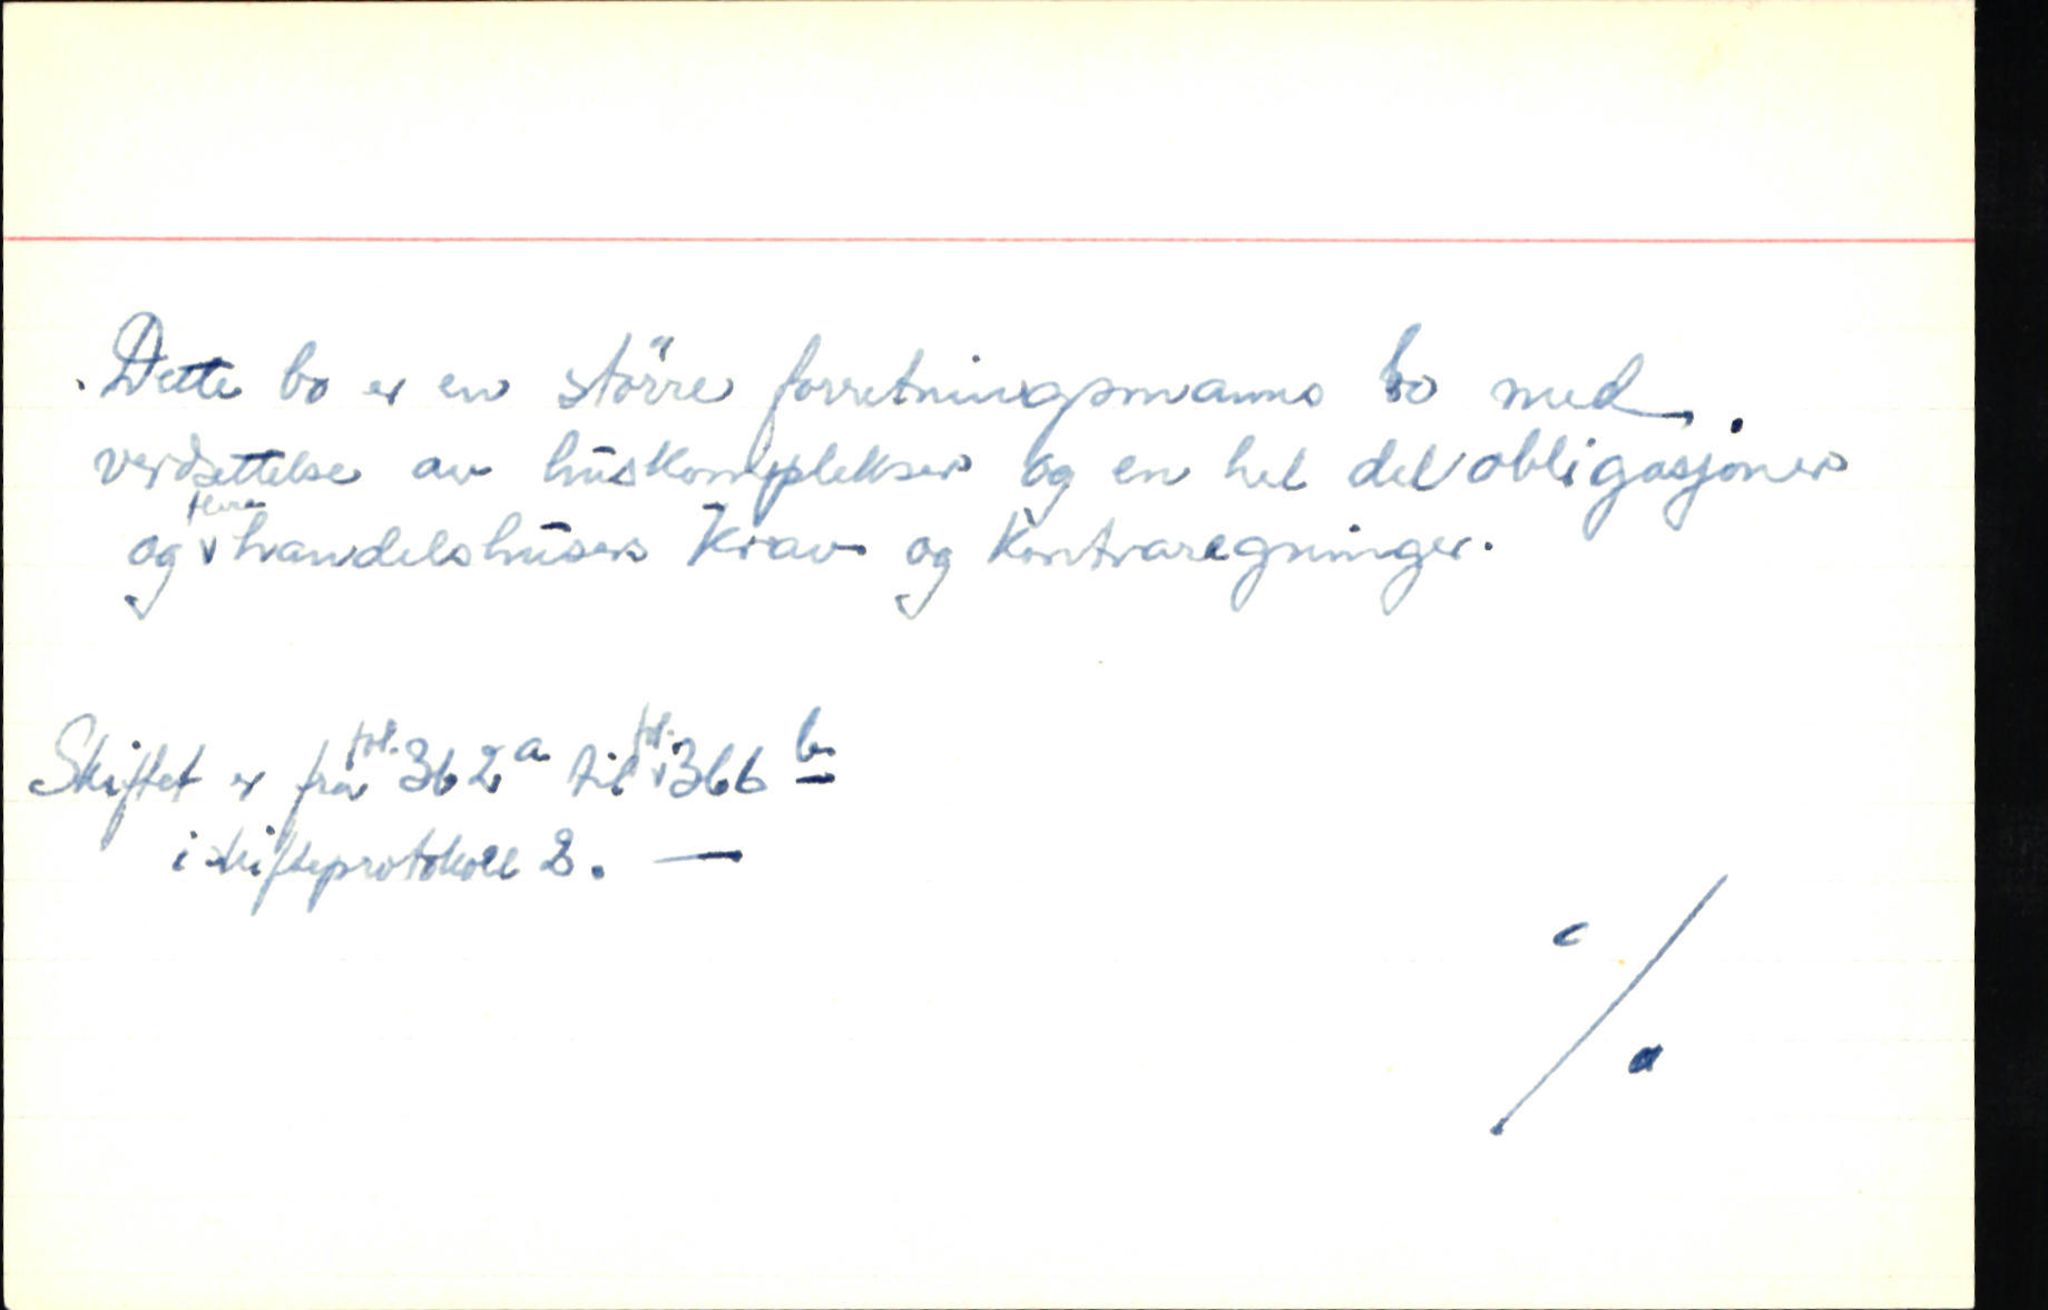 Dette bo er en större forretningsmanns bo med
verdsettelse av huskomplekser og en hel del obligasjoner
og flere handelshusers krav og kontraregninger.
Skiftet er frå fol. 362 a til fol. 366 b
i skifteprotokoll 2. —
c / a